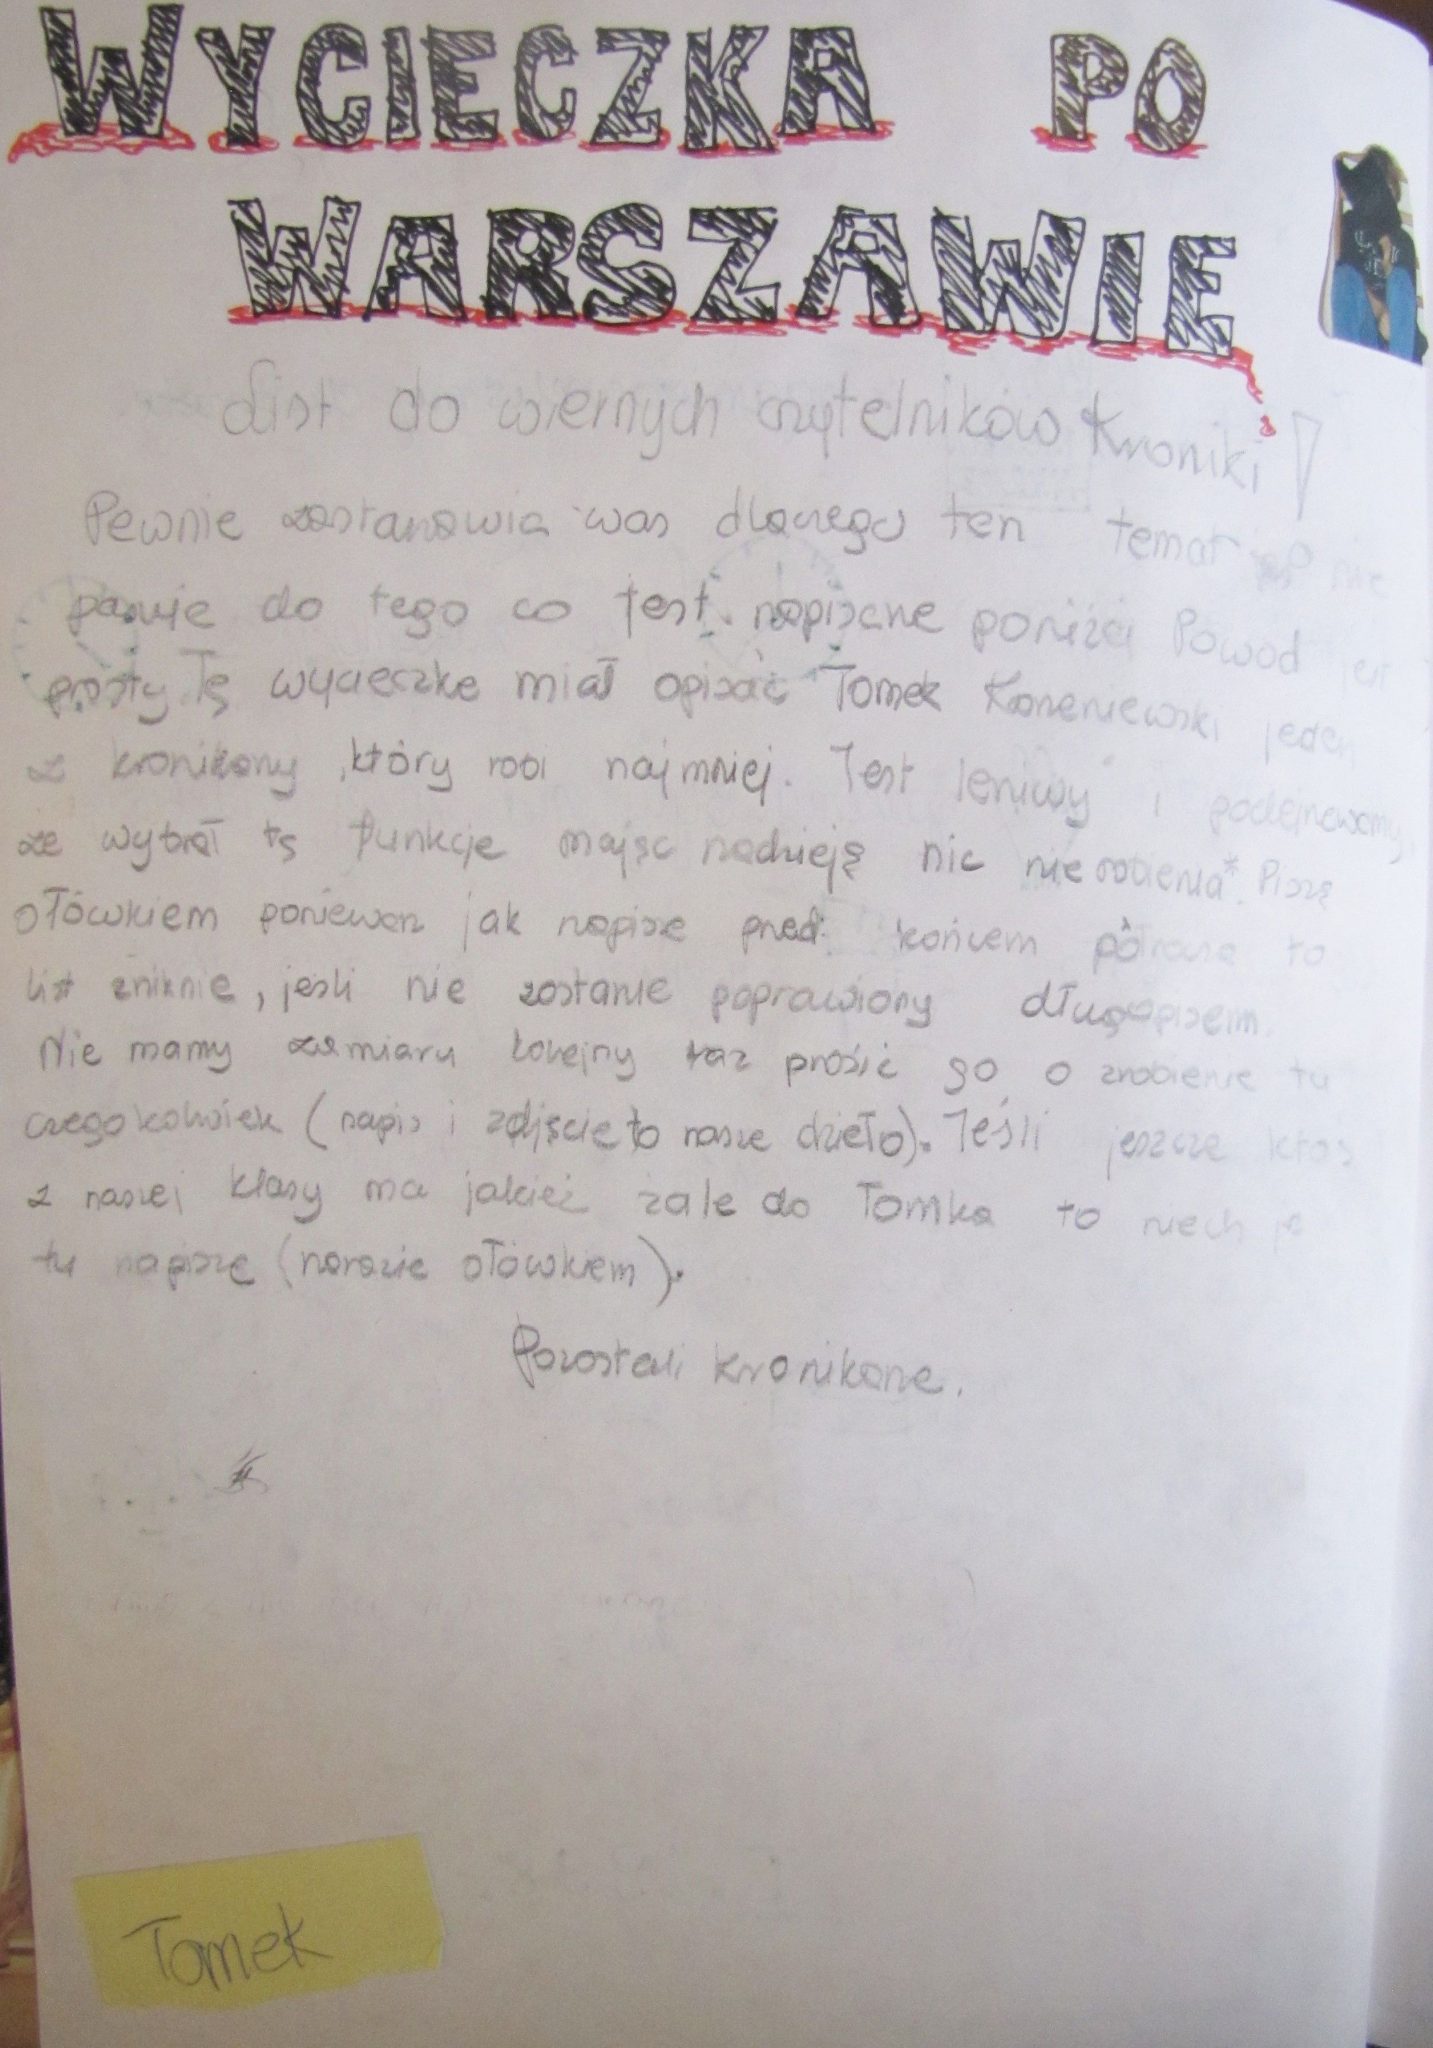 WYCIECZKA PO
WARSZAWIE
List do wiernych czytelników Kroniki!
Pewnie zastanawia was dlaczego ten temat nie
pasuje do tego co jest napisane poniżej Powód jest
prosty Tę wycieczke miał opisać Tomek jeden
z kronikarzy, który robi najmniej. Jest leniwy i podejrzewamy,
że wybrał tę funkcje mając nadzieję nic nie robienia*. Piszę
ołówkiem ponieważ jak napisze przed końcem to
list zniknie, jeśli nie zostanie poprawiony długopisem.
Nie mamy zamiaru kolejny raz prosić go o zrobienie tu
czegokolwiek (napis i zdjęcie to nasze dzieło). Jeśli jeszcze ktoś
z naszej klasy ma jakieś żale do Tomka to niech je
tu napisze (narazie ołówkiem).
Pozostali kronikarze.
Tomek